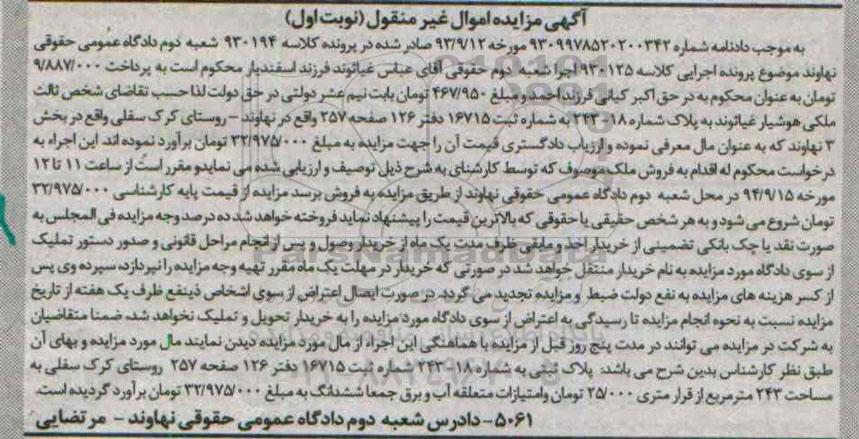 آگهی مزایده اموال غیر منقول (نوبت اول)
به موجب دادنامه شماره ۹۳۰۹۹۷۸۵۲۰۲۰۰۳۴۲ مورخه ۹۳/۹/۱۲ صادر شده در پرونده کلاسه ۹۳۰۱۹۴ شعبه دوم دادگاه عمومی حقوقی
نهاوند موضوع پرونده اجرایی کلاسه ۹۳۰۱۲۵ اجرا شعبه دوم حقوقی آقای عباس غیاثوند فرزند اسفندیار محکوم است به پرداخت ۹/۸۸۷/۰۰۰
تومان به عنوان محکوم به در حق اکبر کیانی فرزند احمد و مبلغ ۴۶۷/۹۵۰ تومان بابت نیم عشر دولتی در حق دولت لذا حسب تقاضای شخص ثالث
ملکی هوشیار غیاثوند به پلاک شماره ۱۸-۲۴۳ به شماره ثبت ۱۶۷۱۵ دفتر ۱۲۶ صفحه ۲۵۷ واقع در نهاوند - روستای کرک سفلی واقع در بخش
۳ نهاوند که به عنوان مال معرفی نموده و ارزیاب دادگستری قیمت آن را جهت مزایده به مبلغ ۳۲/۹۷۵/۰۰۰ تومان برآورد نموده اند. این اجراء به
درخواست محکوم له اقدام به فروش ملک موصوف که توسط کارشنای به شرح ذیل توصیف و ارزیابی شده می نماید و مقرر است از ساعت ۱۱ تا ۱۲
مورخه ۹۴/۹/۱۵ در محل شعبه دوم دادگاه عمومی حقوقی نهاوند از طریق مزایده به فروش برسد مزایده از قیمت پایه کارشناسی ۳۲/۹۷۵/۰۰۰
تومان شروع می شود و به هر شخص حقیقی یا حقوقی که بالاترین قیمت را پیشنهاد نماید فروخته خواهد شد ده درصد وجه مزایده فی المجلس به
صورت نقد یا چک بانکی تضمینی از خریدار اخذ و مابقی ظرف مدت یک ماه از خریدار وصول و پس از انجام مراحل قانونی و صدور دستور تملیک
از سوی دادگاه مورد مزایده به نام خریدار منتقل خواهد شد در صورتی که خریدار در مهلت یک ماه مقرر تهیه وجه مزایده را نپردازد، سپرده وی پس
از کسر هزینه های مزایده به نفع دولت ضبط و مزایده تجدید می گردد. در صورت ایصال اعتراض از سوی اشخاص ذینفع ظرف یک هفته از تاریخ
مزایده نسبت به نحوه انجام مزایده تا رسیدگی به اعتراض از سوی دادگاه مورد مزایده را به خریدار تحویل و تملیک نخواهد شد، ضمنا متقاضیان
به شرکت در مزایده می توانند در مدت پنج روز قبل از مزایده با هماهنگی این اجراء از مال مورد مزایده دیدن نمایند مال مورد مزایده و بهای آن
طبق نظر کارشناس بدین شرح می باشد: پلاک ثبتی به شماره ۱۸-۲۴۳ شماره ثبت ۱۶۷۱۵ دفتر ۱۲۶ صفحه ۲۵۷ روستای کرک سفلی به
مساحت ۲۴۳ مترمربع از قرار متری ۲۵/۰۰۰ تومان وامتیازات متعلقه آب و برق جمعا ششدانگ به مبلغ ۳۲/۹۷۵/۰۰۰ تومان برآورد گردیده است.
۵۰۶۱- دادرس شعبه دوم دادگاه عمومی حقوقی نهاوند - مرتضایی
ParsNamadData